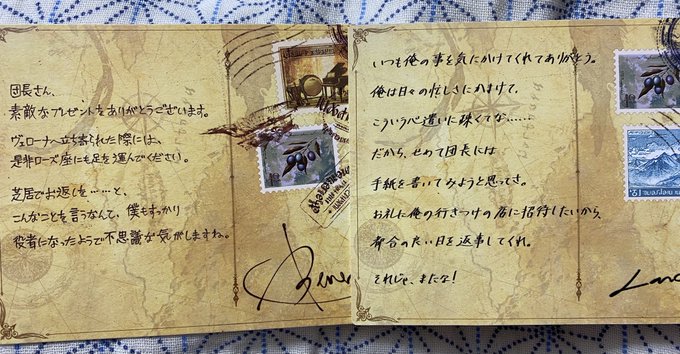 団長さん、
素敵なプレゼントをありがとうございます。
ヴェローナへ立ち寄られた際には、
是非ローズ座にも足を運んでください。
芝居でお返しを……と、
こんなことを言うなんて、僕もすっかり
役者になったようで不思議な気がしますね。
いつも俺の事を気にかけてくれてありがとう。
俺は日々の忙しさにかまけて、
こういう心遣いに疎くてな……
だから、せめて団長には
手紙を書いてみようと思ってさ。
お礼に俺の行きつけの店に招待したいから、
都合の良い日を返事してくれ。
それじゃ、またな!